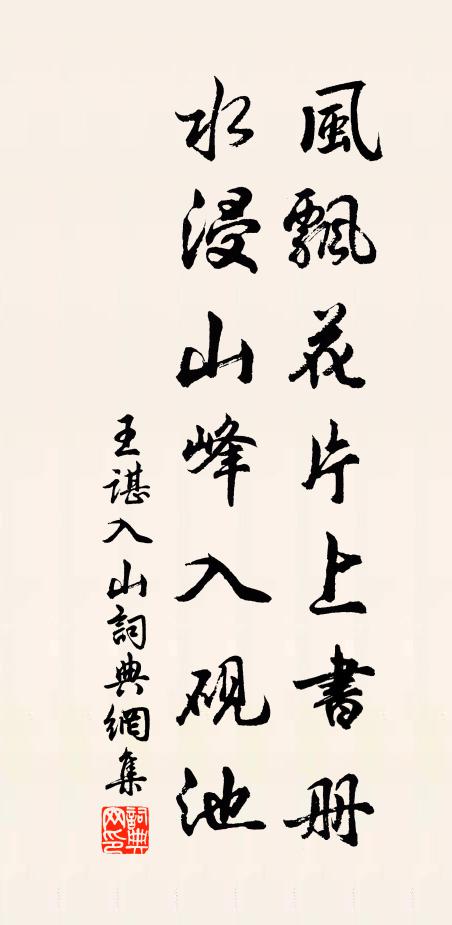 風飄花片上書册
水浸山峰入硯池
王諶入山詞典網集
詞典网印